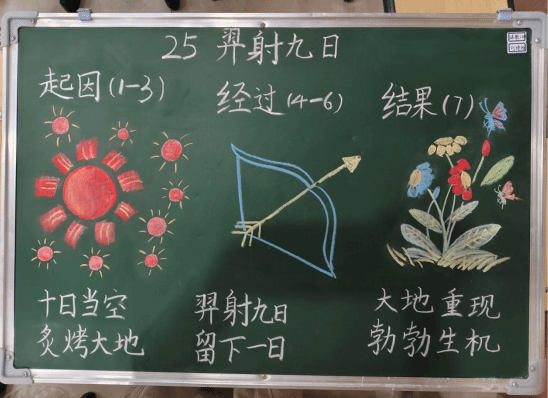 25 羿射九日
起因(1-3)
经过(4-6)
结果(7)
十日当空
炙烤大地
羿射九日
留下一日
大地重现
勃勃生机